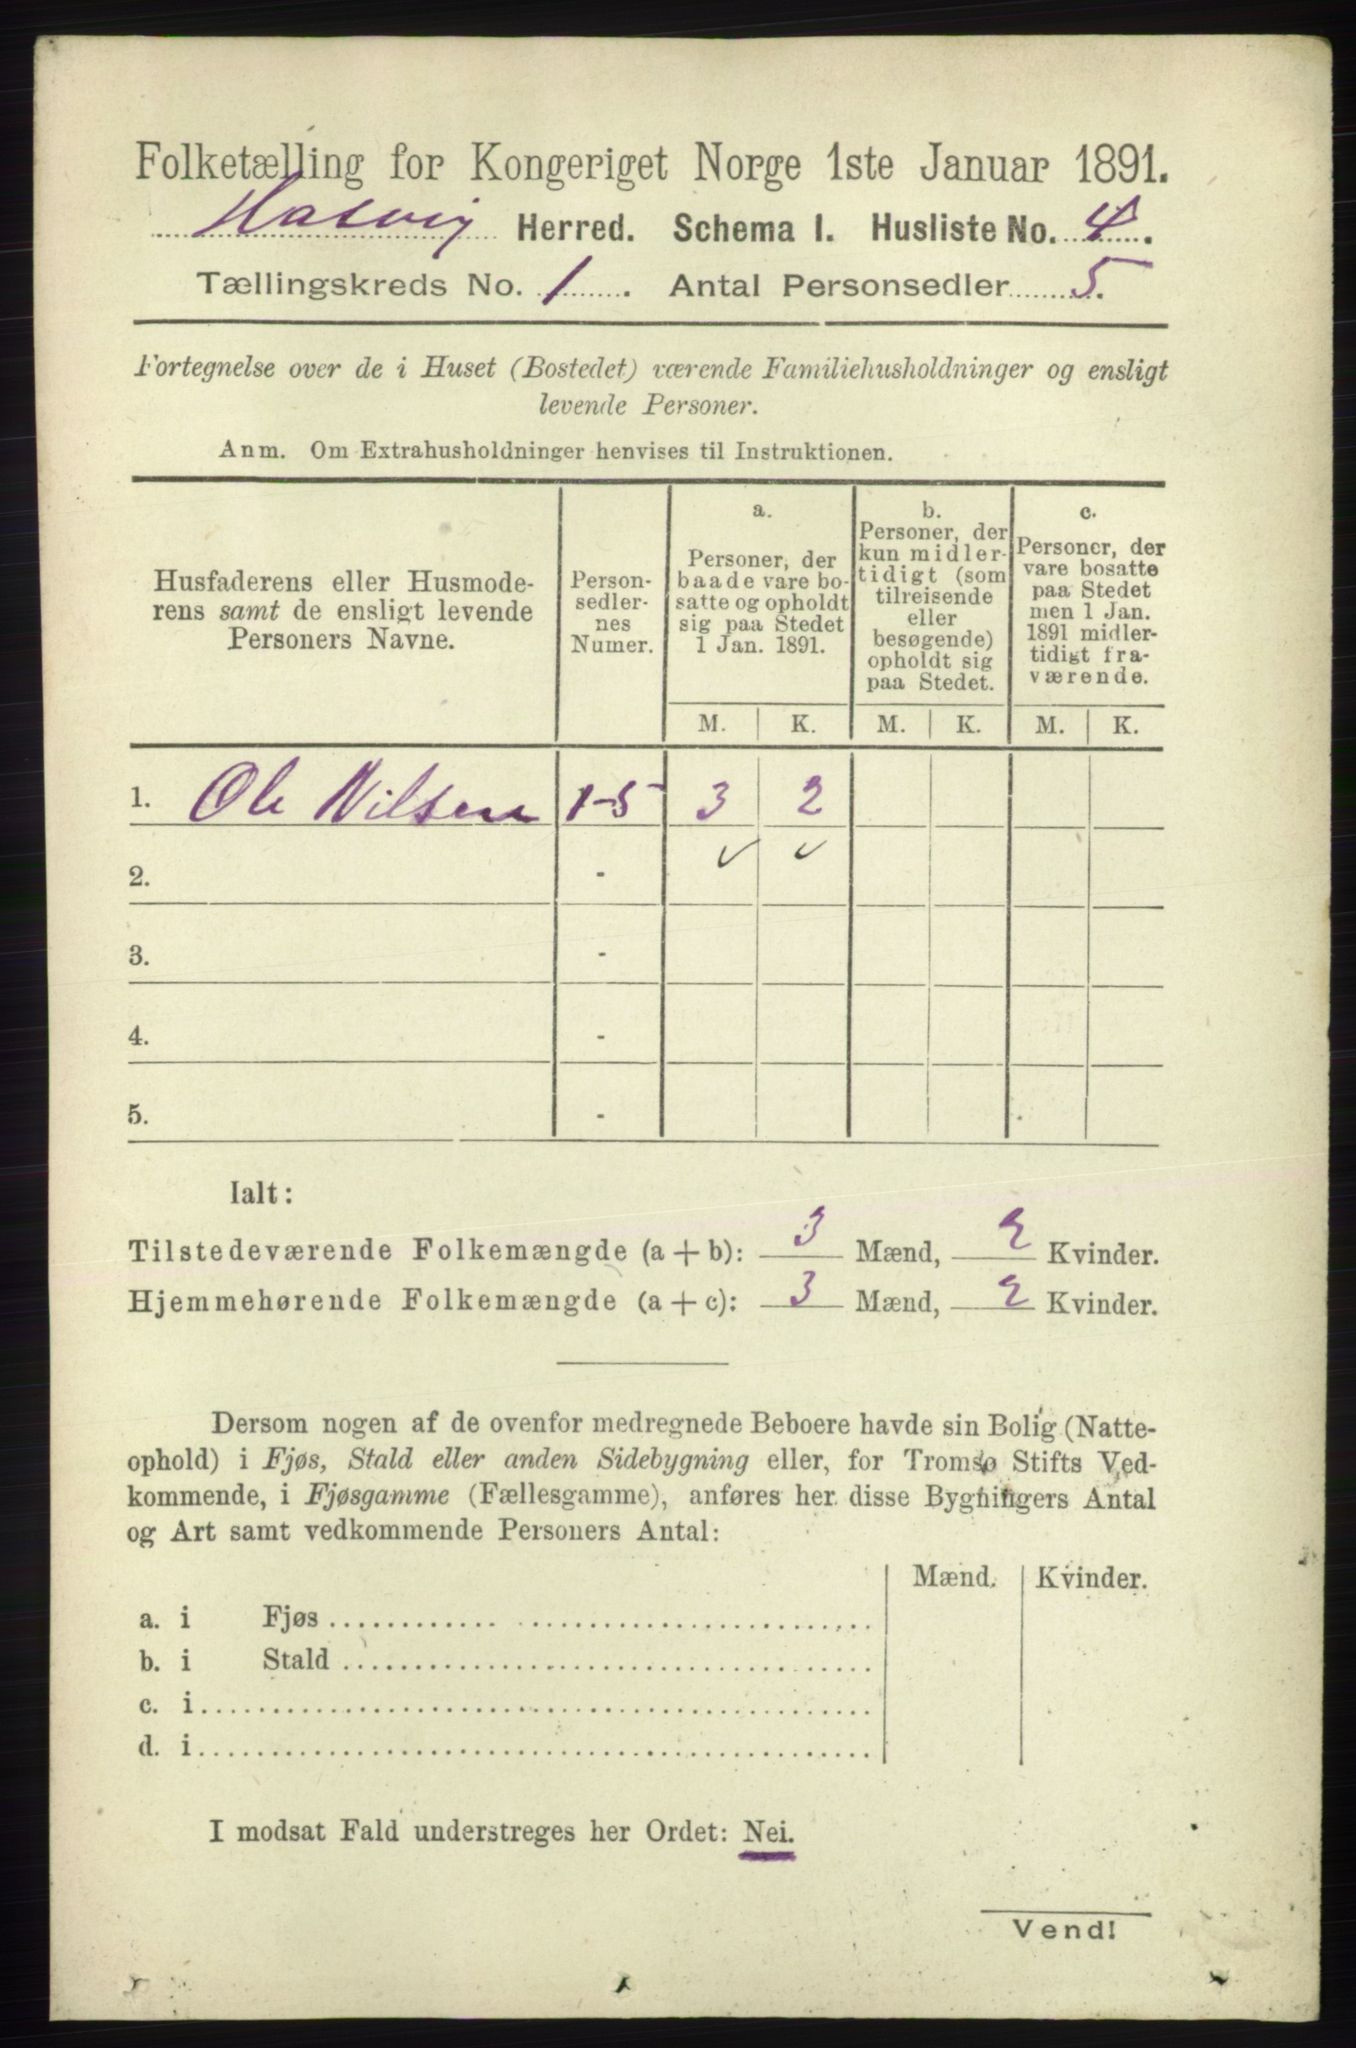 Folketælling for Kongeriget Norge 1ste Januar 1891.
Hasvig Herred. Schema I. Husliste No. 4.
Tællingskreds No. 1. Antal Personsedler 5.
Fortegnelse over de i Huset (Bostedet) værende Familiehusholdninger og ensligt
levende Personer.
Anm. Om Extrahusholdninger henvises til Instruktionen.
Husfaderens eller Husmode-
rens samt de ensligt levende
Personers Navne.
Person-
sedler-
nes
Numer.
a.
Personer, der
baade vare bo-
satte og opholdt
sig paa Stedet
1 Jan. 1891.
b.
Personer, der
kun midler-
tidigt (som
tilreisende
eller
besøgende)
opholdt sig
paa Stedet.
c.
Personer, der
vare bosatte
paa Stedet
men 1 Jan.
1891 midler-
tidigt fra-
værende.
M. K. M. K. M. K.
1. Ole Nilsen 1-5 3 2
2. - ✓ ✓
3. -
4. -
5. -
Ialt:
Tilstedeværende Folkemængde (a + b): 3 Mænd, 2 Kvinder.
Hjemmehørende Folkemængde (a + c): 3 Mænd, 2 Kvinder.
Dersom nogen af de ovenfor medregnede Beboere havde sin Bolig (Natte-
ophold) i Fjøs, Stald eller anden Sidebygning eller, for Tromsø Stifts Ved-
kommende, i Fjøsgamme (Fællesgamme), anføres her disse Bygningers Antal
og Art samt vedkommende Personers Antal:
Mænd. Kvinder.
a. i Fjøs
b. i Stald
c. i
d. i
I modsat Fald understreges her Ordet: Nei.
Vend!